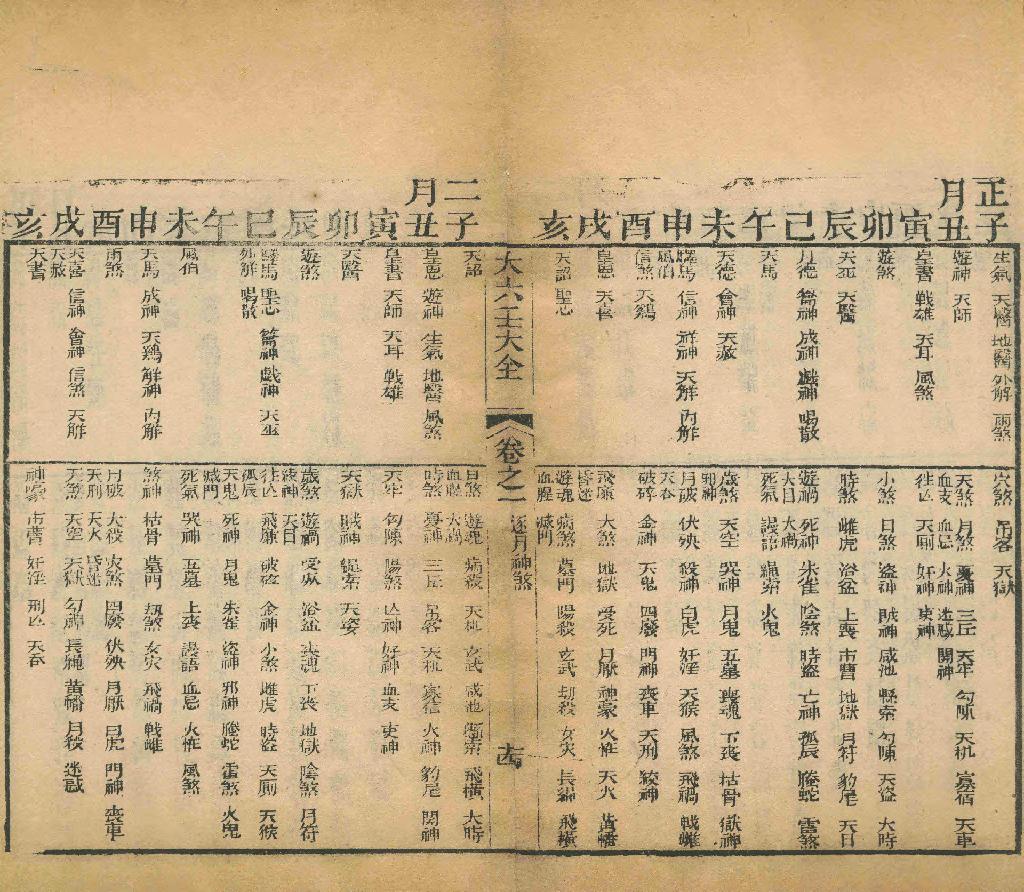 正月
子 丑 寅 卯 辰 巳 午 未 申 酉 戌 亥
生氣 天醫 地醫 外解 雨煞
遊神 天師
皇書 戰雄 天耳 風煞
遊煞
天巫 天醫
月德 會神 成神 戲神 喝散
天馬
天德 會神 天赦
驛馬 信神 祥神 天解 內解
風伯
信煞 天鷄
皇恩 天喜
天詔 聖心
穴煞 吊客 天獄
天煞 月煞 憂神 三丘 天牢 勾陳 天机 寡宿 天車
血支 血忌 火神 迷惑 關神
往亡 天廁 奸神 吏神
小煞 日煞 盜神 賊神 咸池 懸索 勾陳 天盜 大時
時煞 雌虎 浴盆 上喪 市曹 地獄 月符 豹尾 天日
遊禍 死神 朱雀 陰煞 時盜 亡神 孤辰 螣蛇 雷煞
天目 大禍
死氣 謾語 繩索 火鬼
歲煞 天空 哭神 月鬼 五墓 喪魂 下喪 枯骨 獄神
邪神
月破 伏殃 殺神 白虎 奸淫 天猴 風煞 飛禍 戰雌
破碎 金神 天鬼 四廢 門神 喪車 天刑 絞神
飛廉 大煞 地獄 受死 月厭 神豪 火怪 天火 黃旛
昏迷
遊魂 病煞 墓門 陽殺 玄武 劫殺 女灾 長繩 飛橫
血腥 滅門
大六壬大全
卷之二
逐月神煞
二月
子 丑 寅 卯 辰 巳 午 未 申 酉 戌 亥
天詔
皇恩 遊神 生氣 地醫 風煞
皇書 天師 天耳 戰雄
天醫
遊煞
驛馬 聖心 會神 戲神 天巫
喝散
風伯
天馬 成神 天鷄 解神 內解
雨煞
天喜 信神 會神 信煞 天解
天赦
天書
日煞 遊魂 病殺 天机 玄武 咸池 懸索 飛橫 大時
血腥 大禍
時煞 憂神 三丘 吊客 天机 家信 火神 豹尾 關神
天牢 勾陳 陽煞 亡神 奸神 血支 吏神
天獄 賊神 繩索 天姿
歲煞 遊禍 受死 浴盆 喪魂 下喪 地獄 陰煞 月符
天目
往亡 飛廉 破碎 金神 小煞 雌虎 時盜 天廁 天猴
孤辰
天鬼 死神 月鬼 朱雀 盜神 邪神 螣蛇 雷煞 火鬼
滅門
死氣 哭神 五墓 上喪 謾語 血忌 火怪 風煞
煞神 枯骨 墓門 劫煞 女灾 飛禍 戰雌
月破 大殺 灾煞 四廢 伏殃 月厭 白虎 門神 喪車
天刑 天火 昏迷
天煞 天空 天獄 勾神 長繩 黃旛 月殺 迷惑
神豪 市曹 奸淫 刑亡 天吞